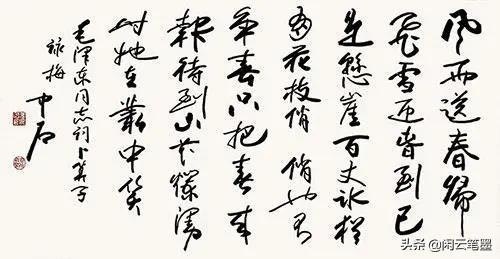 風雨送春歸
飛雪迎春到已
是懸崖百丈冰猶
有花枝俏 俏也不
爭春只把春來
報待到山花爛漫
時她在叢中笑
毛澤東同志詞卜算子
詠梅 中石
头条 @闲云笔墨